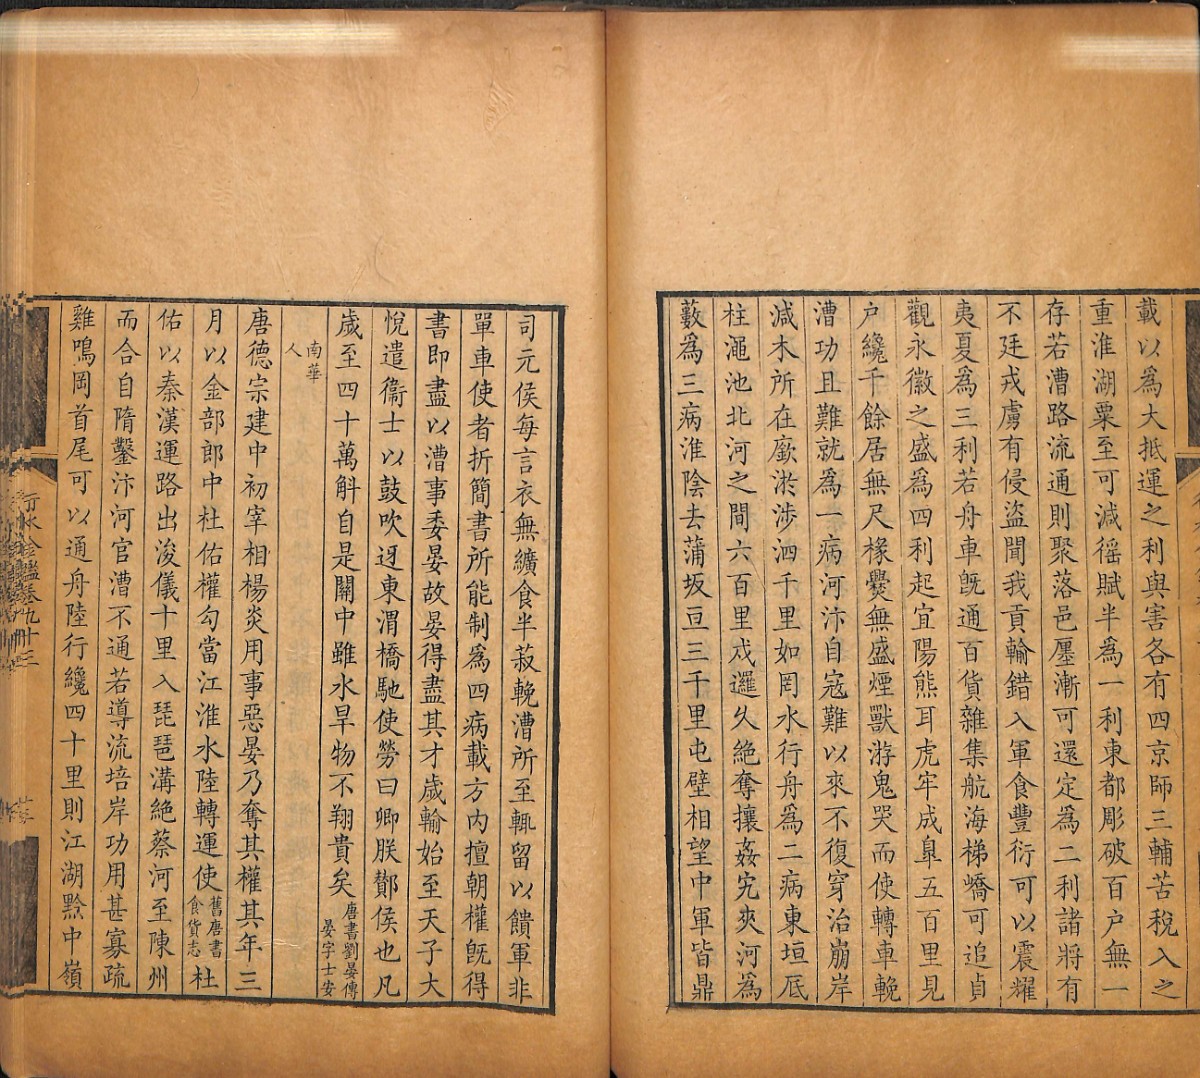 載以為大抵運之利與害各有四京師三輔苦稅入之
重淮湖粟至可減徭賦半為一利東都彫破百户無一
存若漕路流通則聚落邑廛漸可還定為二利諸將有
不廷戎虜有侵盜聞我貢輸錯入軍食豐衍可以震耀
夷夏為三利若舟車旣通百貨雜集航海梯嶠可追貞
觀永徽之盛為四利起宜陽熊耳虎牢成臯五百里見
户纔千餘居無尺椽爨無盛煙獸游鬼哭而使轉車輓
漕功且難就為一病河汴自寇難以來不復穿治崩岸
滅木所在廞淤涉泗千里如罔水行舟為二病東垣厎
柱澠池北河之間六百里戍邏久絶奪攘姦宄夾河為
藪為三病淮陰去蒲坂亘三千里屯壁相望中軍皆鼎
司元侯每言衣無纊食半菽輓漕所至輒留以饋軍非
單車使者折簡書所能制為四病載方内擅朝權旣得
書即盡以漕事委晏故晏得盡其才歲輸始至天子大
悅遣衞士以鼓吹迓東渭橋馳使勞曰卿朕酇侯也凡
歲至四十萬斛自是關中雖水旱物不翔貴矣唐書劉晏傳
晏字士安
南華
人
唐德宗建中初宰相楊炎用事惡晏乃奪其權其年三
月以金部郎中杜佑權勾當江淮水陸轉運使舊唐書
食貨志杜
佑以秦漢運路出浚儀十里入琵琶溝絶蔡河至陳州
而合自隋鑿汴河官漕不通若導流培岸功用甚寡疏
雞鳴岡首尾可以通舟陸行纔四十里則江湖黔中嶺
行水金鑑卷九十三